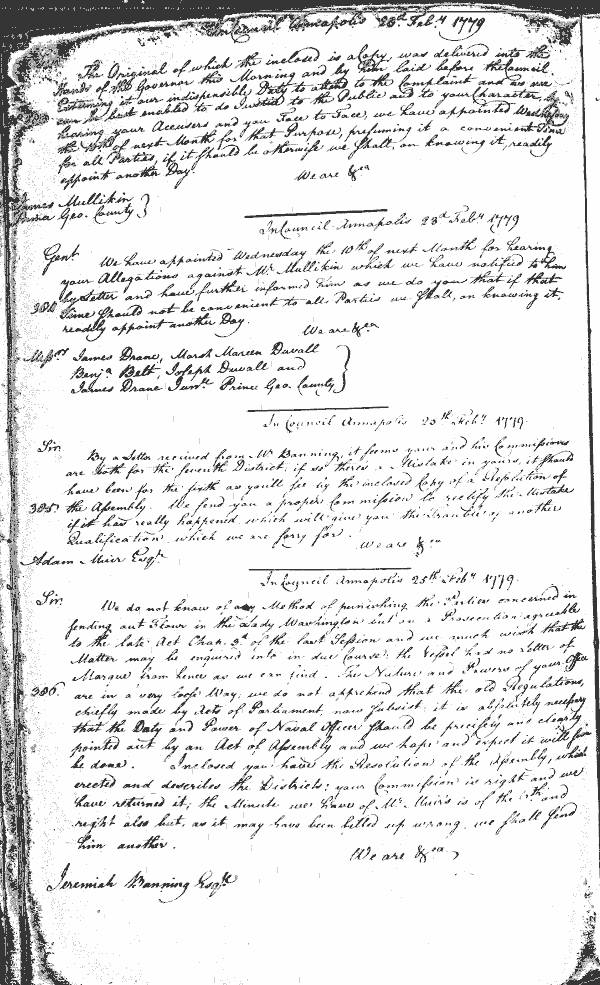 In Council Annapolis 23d Feby 1779
The Original of which the inclosed is a Copy, was delivered into the
Hands of the Governor this Morning and by him laid before the Council
Esteeming it our indispensible Duty to attend to the Complaint and as we
can be best enabled to do Justice to the Public and to your Character, by
hearing your Accusers and you Face to Face, we have appointed Wednesday
the 10th of next Month for that Purpose, presuming it a convenient Time
for all Parties, if it should be otherwise we shall, on knowing it, readily
appoint another Day.
We are &ca
James Mullikin
Prince Geo. County }
In Council Annapolis 23d Feby 1779
Gent. We have appointed Wednesday the 10th of next Month for hearing
your Allegations against Mr Mullikin which we have notified to him
by Letter and have further informed him as we do you that if that
384 Time should not be convenient to all Parties we shall, on knowing it,
readily appoint another Day.
We are &ca
Messrs James Drane, Marsh Mareen Duvall
Benja Belt, Joseph Duvall and
James Drane Junr Prince Geo. County }
In Council Annapolis 25th Feby 1779.
Sir.
By a Letter received from Mr Banning, it seems your and his Commissions
are both for the seventh District, if so there's a Mistake in yours, it should
have been for the sixth as you'll see by the inclosed Copy of a Resolution of
385. the Assembly. We send you a proper Commission to rectify the Mistake
if it has really happened, which will give you the Trouble of another
Qualification, which we are sorry for.
We are &ca
Adam Muir Esqr
In Council Annapolis 25th Feby 1779.
Sir.
We do not know of any Method of punishing the Parties concerned in
sending out Flour in the Lady Washington but on a Prosecution agreeable
to the late Act Chap. 3d of the last Session and we much wish that the
Matter may be enquired into in due Course; the Vessel had no Letter of
Marque from hence as we can find. The Nature and Powers of your Office
386. are in a very loose Way; we do not apprehend that the old Regulations,
chiefly made by Acts of Parliament, now subsist; it is absolutely necessary
that the Duty and Power of Naval Officer should be precisely and clearly
pointed out by an Act of Assembly and we hope and expect it will soon
be done. Inclosed you have the Resolution of the Assembly, which
erected and describes the Districts; your Commission is right and we
have returned it; the Minute we have of Mr Muirs is of the 6th and
right also but, as it may have been filled up wrong, we shall send
him another.
We are &ca
Jeremiah Banning Esqr